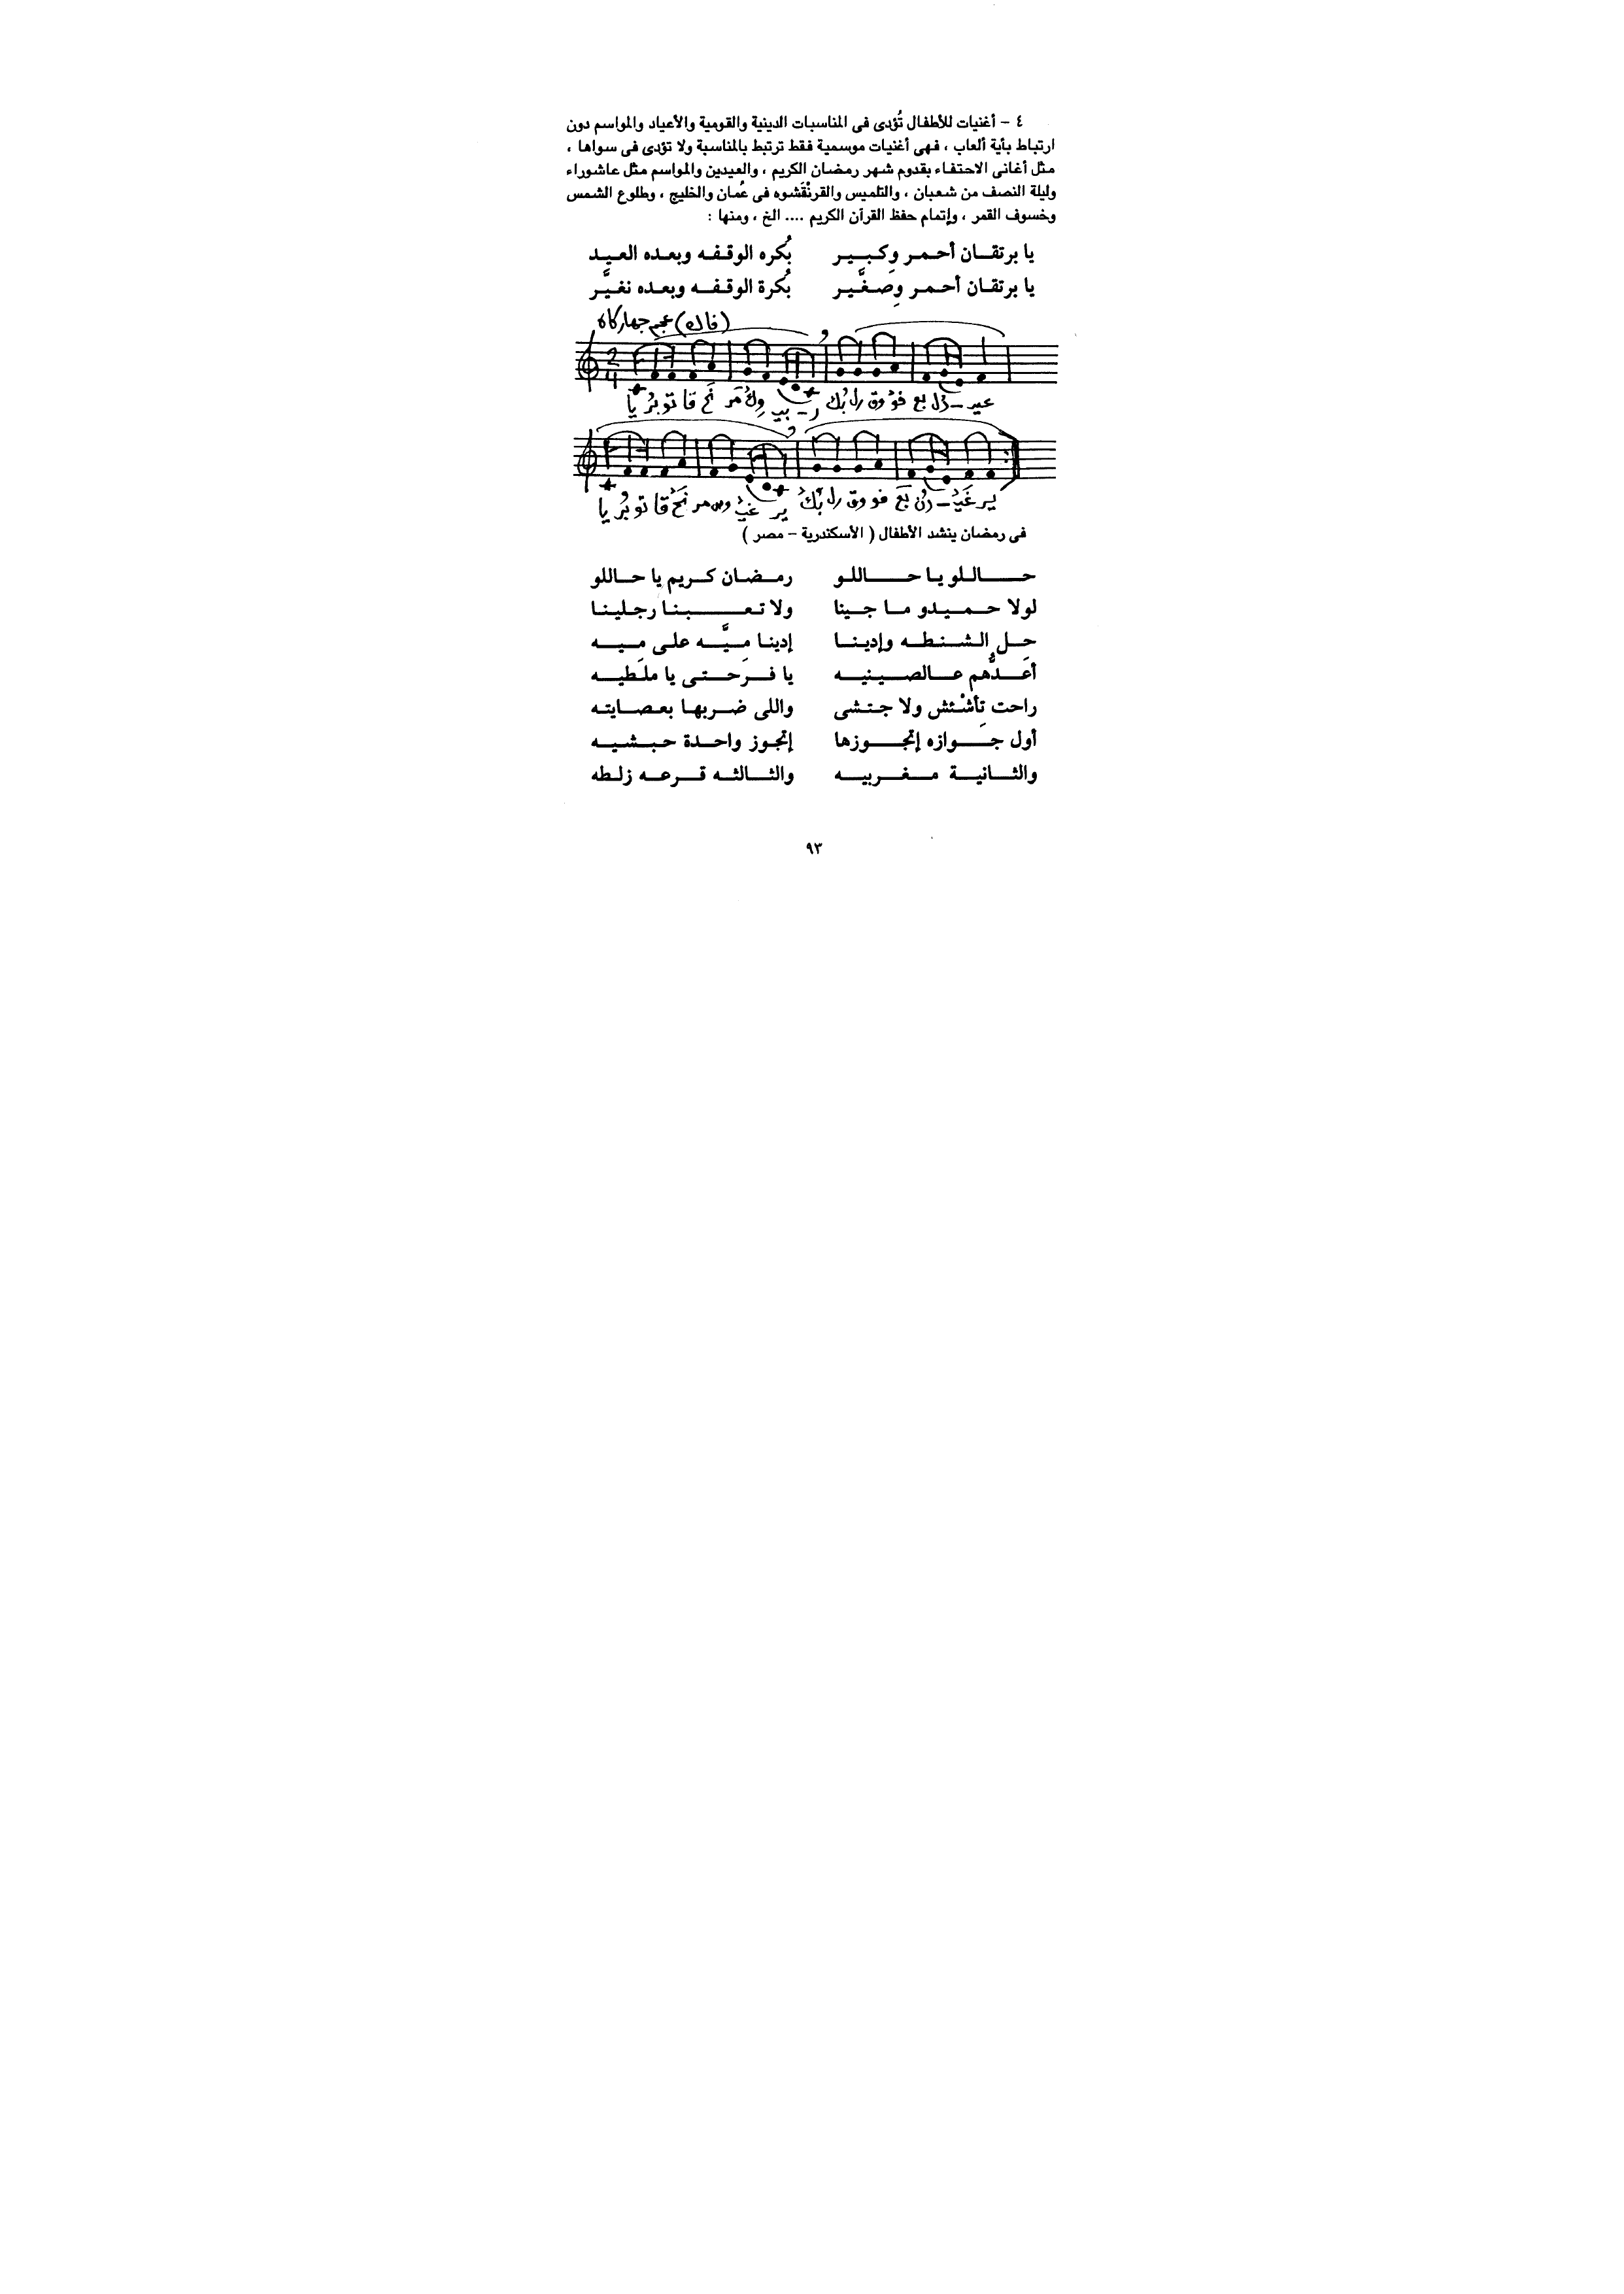 ٤ – أغنيات للأطفال تُؤدى فى المناسبات الدينية والقومية والأعياد والمواسم دون
ارتباط بأية ألعاب ، فهى أغنيات موسمية فقط ترتبط بالمناسبة ولا تؤدى فى سواها ،
مثل أغانى الاحتفاء بقدوم شهر رمضان الكريم ، والعيدين والمواسم مثل عاشوراء
وليلة النصف من شعبان ، والتلميس والقرنْقَشوه فى عُمان والخليج ، وطلوع الشمس
وخسوف القمر ، وإتمام حفظ القرآن الكريم .... الخ ، ومنها :
يا برتقان أحمر وكبير بُكره الوقفه وبعده العيد
يا برتقان أحمر وِصَغَّير بُكرة الوقفه وبعده نغيَّر
عجم جهاركاه
2
4
فى رمضان ينشد الأطفال ( الأسكندرية – مصر )
حاللو يا حاللو رمضان كريم يا حاللو
لولا حميدو ما جينا ولا تعبنا رجلينا
حل الشنطه وإدينا إدينا ميَّه على ميه
أعَدُّهم عالصينيه يا فرَحتى يا ملَطيه
راحت تأشْئش ولا جتشى واللى ضربها بعصايته
أول جَوازه إتجوزها إتجوز واحدة حبشيه
والثانية مغربيه والثالثه قرعه زلطه
٩٣